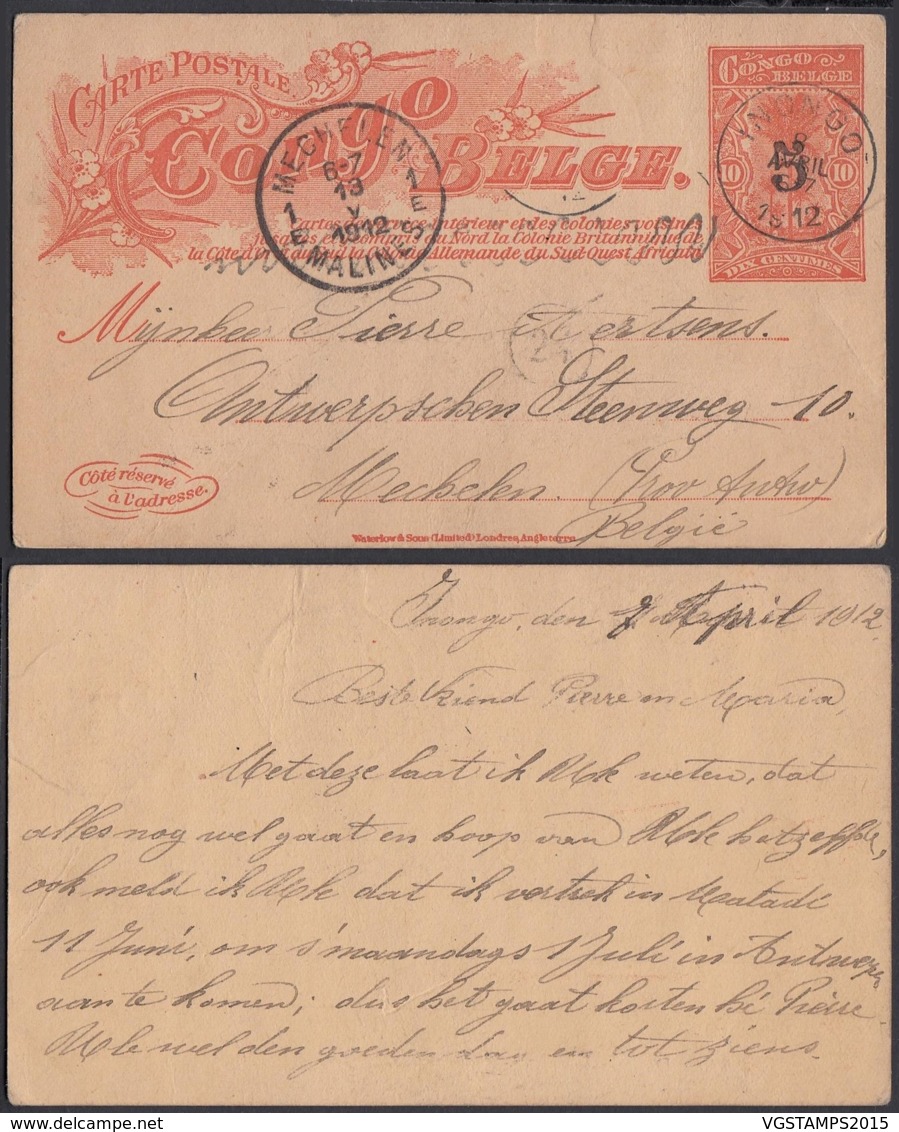 CARTE POSTALE.
Congo BELGE.
CONGO BELGE
10 10
DIX CENTIMES
5
INONGO
8
AVRIL
7
1912
MECHELEN
6-7
13
V
1912
1E 1E
MALINES
Cartes du service intérieur et des colonies voisines
jusques et y compris au Nord la Colonie Britannique de
la Côte d'Or au Sud la Colonie Allemande du Sud-Ouest Africain
Mijnheer Pierre Aertsens.
Antwerpschen Steenweg 10.
Mechelen. (Prov Antw)
België
Côté réservé
à l'adresse.
Waterlow & Sons (Limited) Londres, Angleterre
Inongo, den 7 April 1912
Beste Vriend Pierre en Maria,
Met deze laat ik Ulk weten, dat
alles nog wel gaat en hoop van Ulk hetzeffde,
ook meld ik Ulk dat ik vertrek in Matadi
11 Juni, om s'maandags 1 Juli in Antwerpen
aan te komen; dus het gaat korten hé Pierre.
Ulk wel den goeden dag en tot ziens.
VGSTAMPS2015